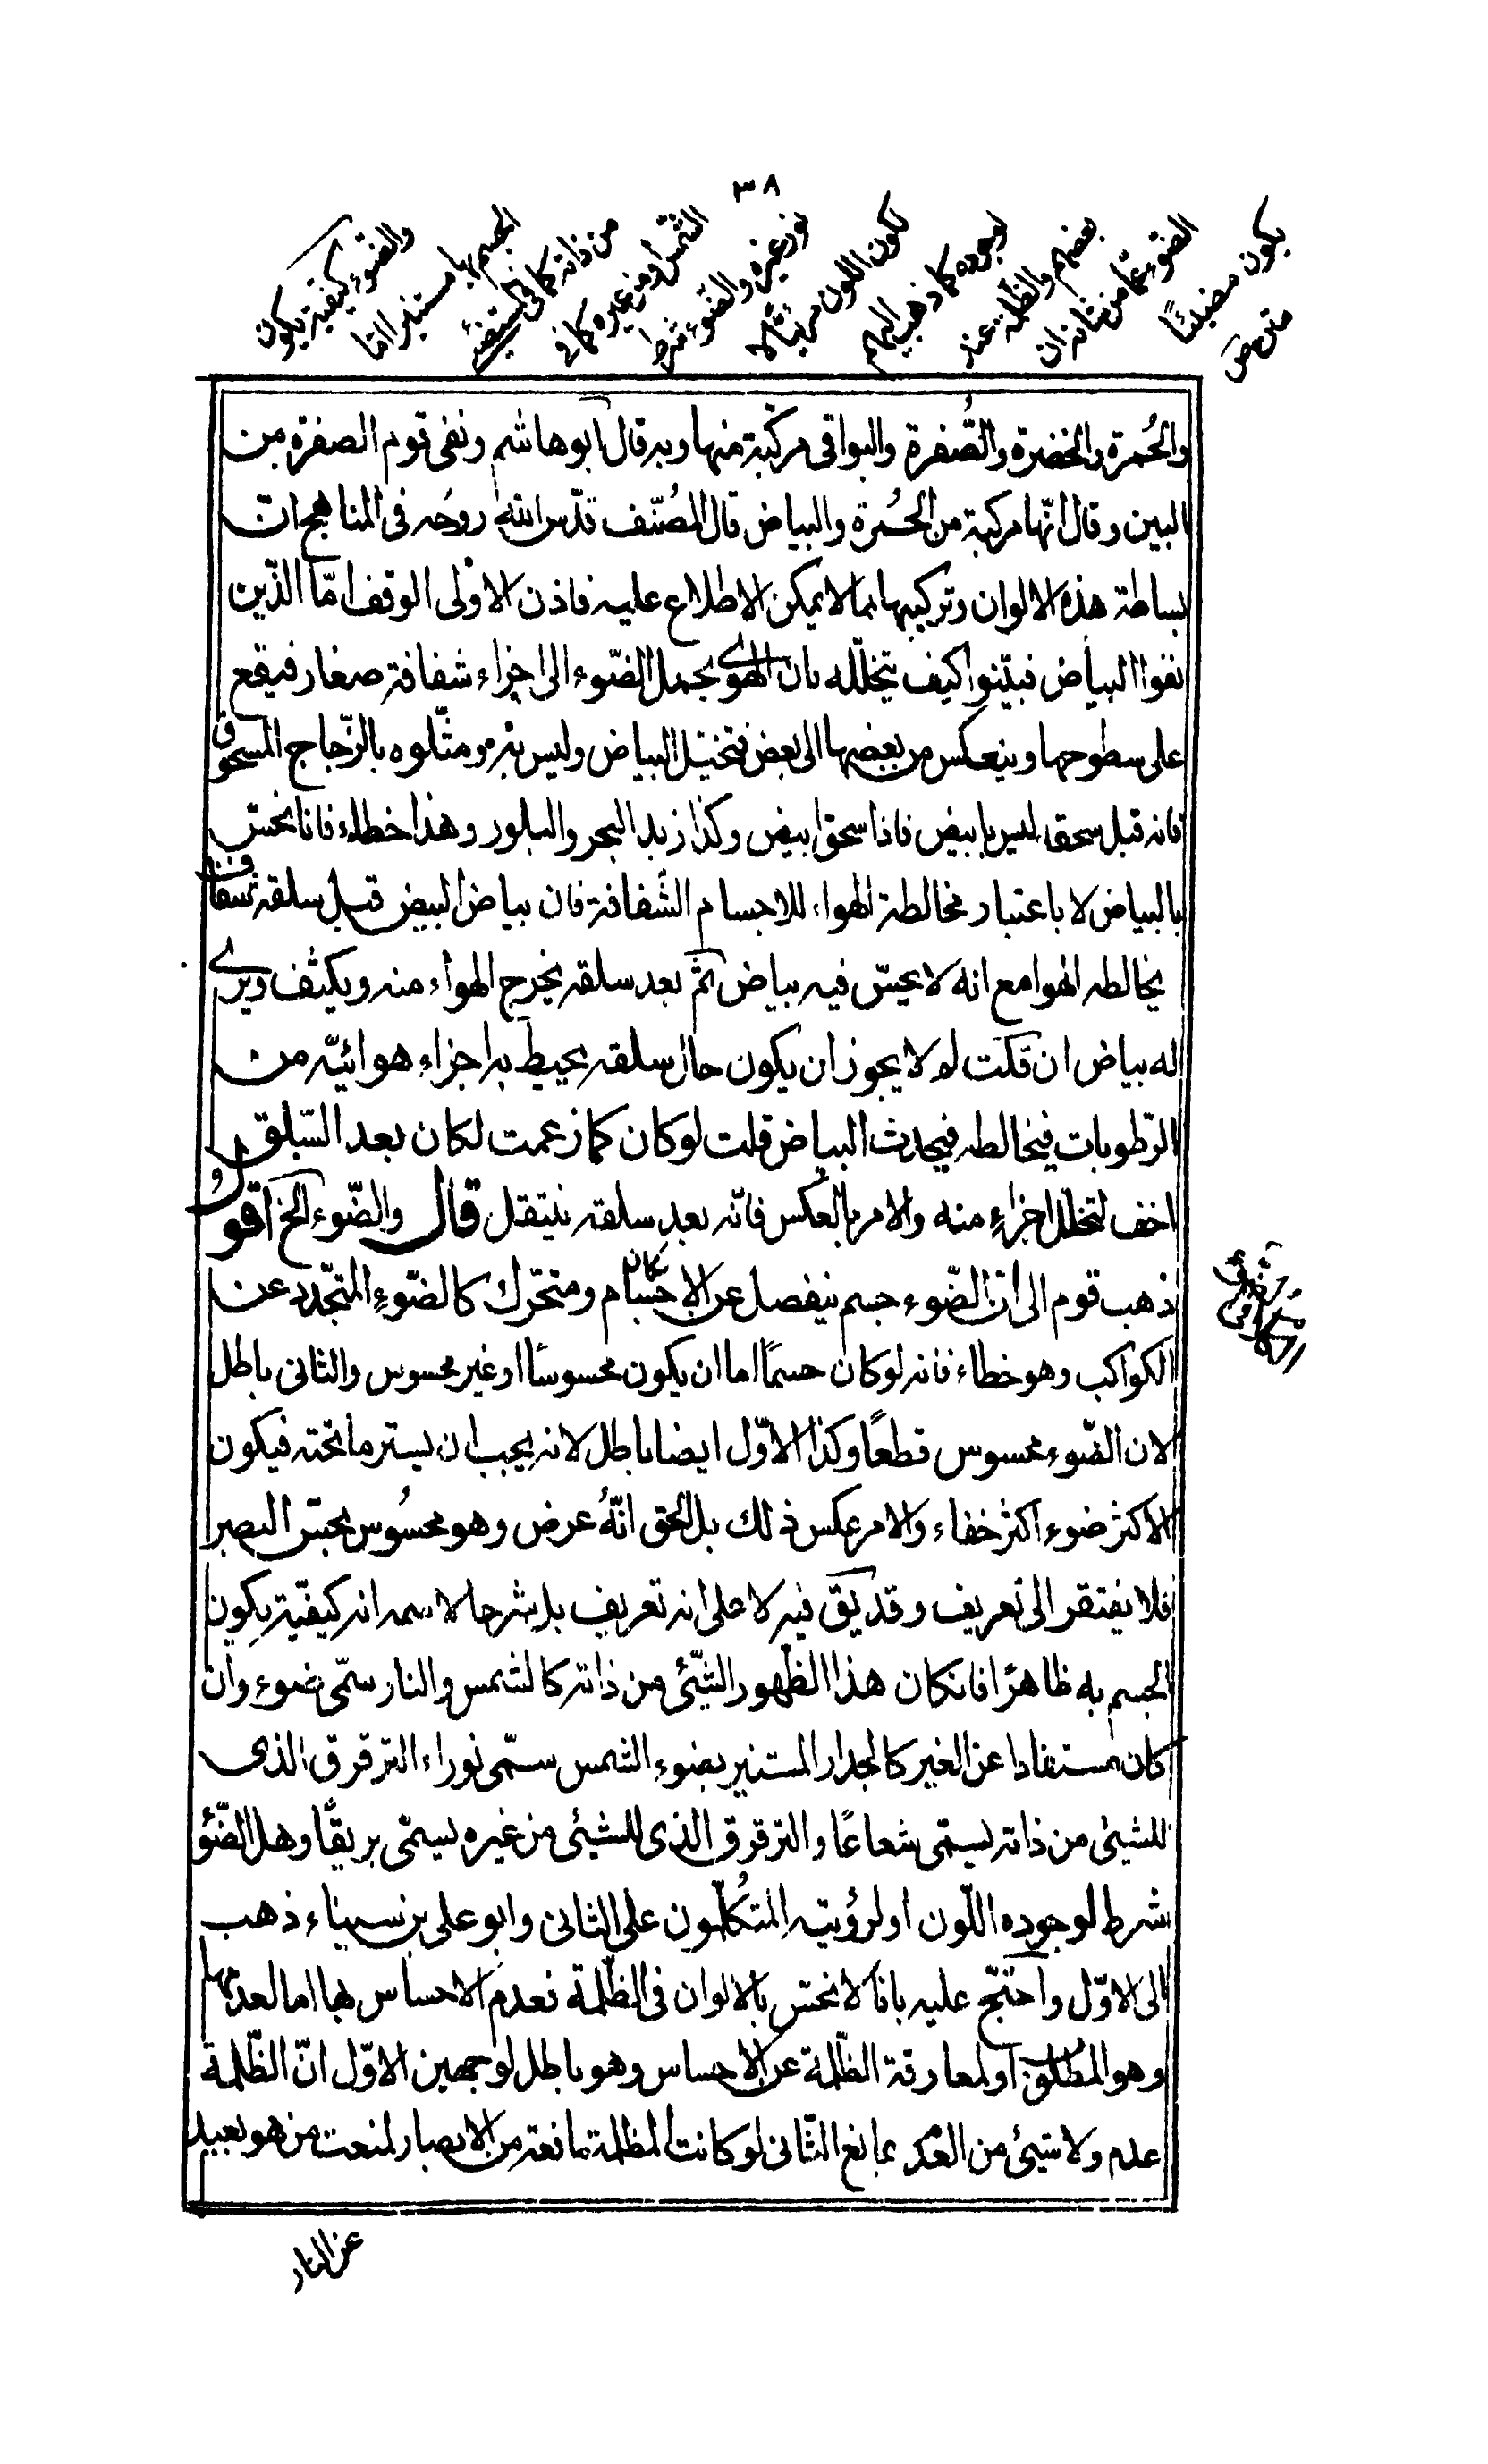 ٣٨
والضّوء كيفية يكون
الجسم بها مستنيرا امّا
من ذاته كما فى المستضيئ
الشمس او من غيره كما فى
نور غيره والضّوء شرط
لكون اللون مرئيّا لا
لوجوده كما ذهب اليه
بعضهم والظّلمة عدم
الضّوء عمّا من شانه ان
يكون مضيئا
متن ص
والحُمرة والخضرة والصُّفرة والبواقى مركّبة منها وبه قال ابو هاشم ونفى قوم الصفرة من
البين وقال انّها مركبة من الحُمرة والبياض قال المُصنّف قدّس الله روحُه فى المناهج ان
بساطة هذه الالوان وتركيبها مما لا يمكن الاطلاع عليه فاذن الاوْلى الوقف امّا الذّين
نفوا البياض فبيّنوا كيف يتخلّله بان الهوى يحمل الضّوء الى اجزاء شفافة صغار فيقع
على سطوحها وينعكس من بعضها الى بعض فتخيّل البياض وليس ثم ومثّلوه بالزّجاج المسحوق
فانه قبل سحقه ليس بابيض فاذا سحق ابيض وكذا زبد البحر والبلور وهذا خطاء فانا نحسّ
بالبياض لا باعتبار مخالطة الهواء للاجسام الشّفافة فان بياض البيض قبل سلقه شفاف
يخالطه الهوا مع انه لا يحسّ فيه بياض ثمّ بعد سلقه يخرج الهواء منه ويكثف ويرى
له بياض ان قلت لم لا يجوز ان يكون حال سلقه يحيط به اجزاء هوائيّه من
الرّطوبات فيخالطه فيحدث البياض قلت لو كان كما زعمت لكان بعد السّلق
اخف لتخلل اجزاءٍ منه والامر بالعكس فانّه بعد سلقه يثقل قال والضّوء الخ اقول
ذهب قوم الى انّ الضّوء جسم ينفصل عن الاجسام ومتحّرك كالضّوءِ المتجّدد عن
الكواكب وهو خطاء فانه لو كان جسمًا اما ان يكون محسوسًا او غير محسوس والثانى باطل
لان الضّوء محسوس قطعًا وكذا الاوّل ايضا باطل لانه يجب ان يستر ما تحته فيكون
الاكثر ضوء اكثر خفاء والامر عكس ذلك بل الحق انّهُ عرض وهو محسُوس بحسّ البصر
فلا يفتقر الى تعريف وقد يق فيه لا على انه تعريف بل شرحا لاسمه انه كيفيّة يكون
الجسم به ظاهرًا فان كان هذا الظّهور للشّيئ من ذاته كالشمس والنار سمّى ضوء وان
كان مستفادا عن الغير كالجدار المستنير بضوء الشمس سمّى نورا والترقرق الذى
للشيئ من ذاته يسمّى شعاعًا والترقرق الذى للشيئ من غيره يسمّى بريقًا وهل الضّوء
شرط لوجوده اللّون او لرؤيته المتكلّمون على الثانى وابو على بن سيناء ذهب
الى الاوّل واحتجّ عليه بانا لا نحسّ بالالوان فى الظّلمة فعدم الاحساس بها اما لعدمها
وهو المطلوب او لمعاوقة الظّلمة عن الاحساس وهو باطل لوجهين الاوّل انّ الظّلمة
عدم ولا شيئ من العدم بمانع الثّانى لو كانت المظلمة مانعة من الابصار لمنعت من هو بعيد
عن النار